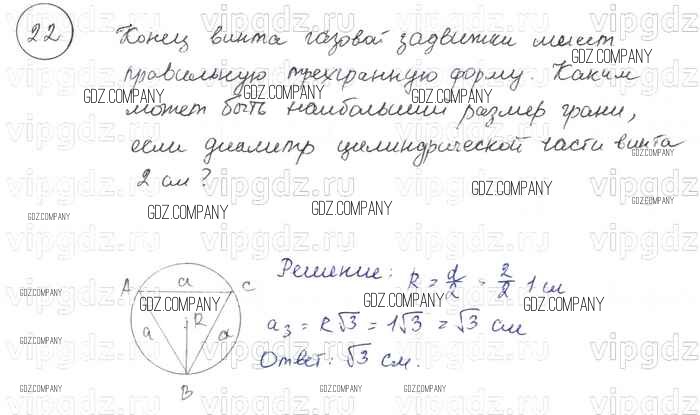 22
Конец винта газовой задвижки имеет
правильную трехгранную форму. Каким
может быть наибольший размер грани,
если диаметр цилиндрической части винта
2 см?
Решение: R = d/2 = 2/2 1 см
a₃ = R√3 = 1√3 = √3 см
Ответ: √3 см.
A a C
a R a
B
GDZ.COMPANY
vipgdz.ru